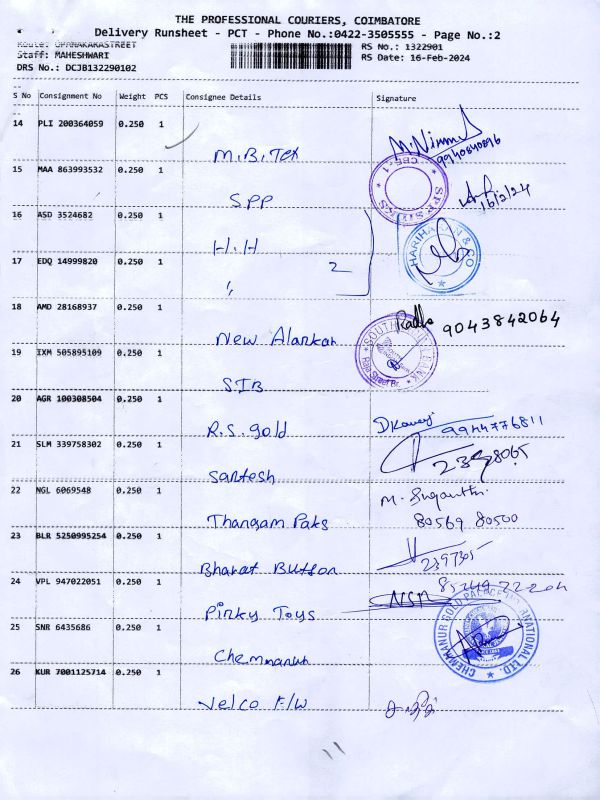 THE PROFESSIONAL COURIERS, COIMBATORE
Delivery Runsheet - PCT - Phone No.:0422-3505555 - Page No.:2
Route: OPANAKARASTREET
RS No.: 1322901
Staff: MAHESHWARI
RS Date: 16-Feb-2024
DRS No.: DCJB132290102
S No Consignment No Weight PCS Consignee Details Signature
14 PLI 200364059 0.250 1 M.B.Tex M.Nimmi 9940840896
15 MAA 863993532 0.250 1 SPP SPP SILKS CBE-1 16/2/24
16 ASD 3524682 0.250 1 H.H HARIHARAN & CO
17 EDQ 14999820 0.250 1 " 2
18 AMD 28168937 0.250 1 New Alankar Radha 9043842064
19 IXM 505895109 0.250 1 SIB SOUTH INDIAN BANK
20 AGR 100308504 0.250 1 R.S. gold 9944776811
21 SLM 339758302 0.250 1 Santesh
22 NGL 6069548 0.250 1 Thangam Paks M. Suganthi 80569 80500
23 BLR 5250995254 0.250 1 Bharat Button 2397305
24 VPL 947022051 0.250 1 Pinky Toys NSM
25 SNR 6435686 0.250 1 Chemmanur CHEMMANUR GOLD PALACE INTERNATIONAL LTD.
26 KUR 7001125714 0.250 1 Velco F/W
11